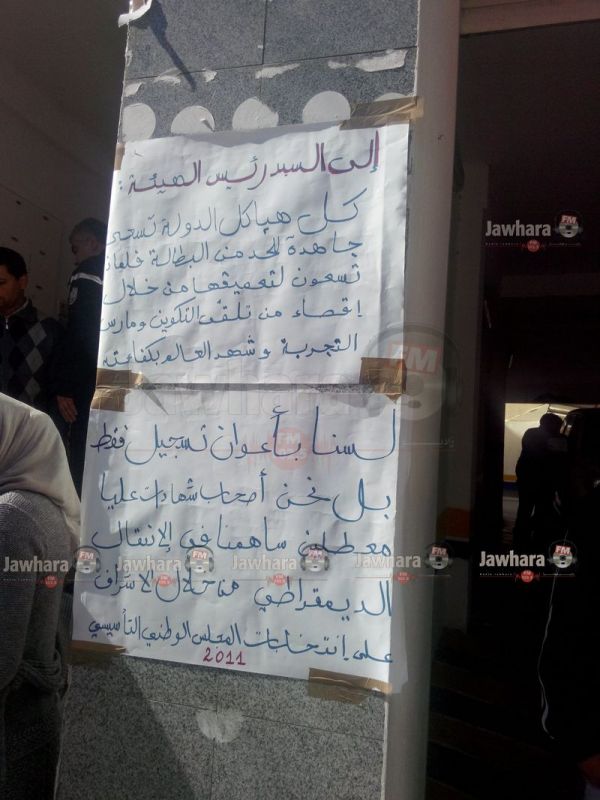 إلى السيد رئيس الهيئة :
كل هياكل الدولة تسعى
جاهدة للحد من البطالة فلماذا
تسعون لتعميقها من خلال
إقصاء من تلقى التكوين ومارس
التجربة وشهد العالم بكفاءته
لسنا بأعوان تسجيل فقط
بل نحن أصحاب شهادات عليا
معطلين ساهمنا في الإنتقال
الديمقراطي من خلال الإشراف
على إنتخابات المجلس الوطني التأسيسي
2011
Jawhara FM
Jawhara FM
Jawhara FM
Jawhara FM
Jawhara FM
Jawhara FM